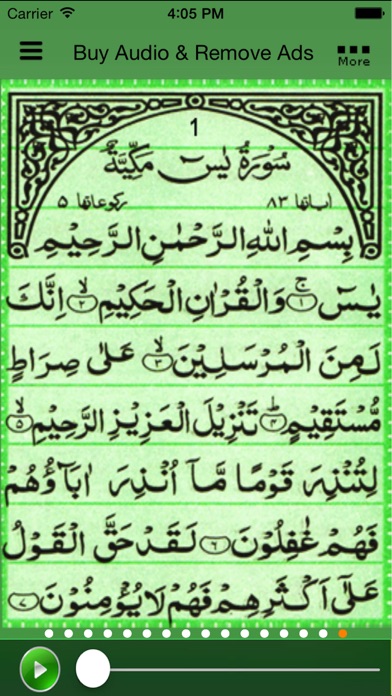 Carrier 4:05 PM
Buy Audio & Remove Ads
More
1
سُوْرَةُ يٰسٓ مَكِّيَّةٌ
اٰیاتها ٨٣ رکوعاتها ٥
بِسْمِ اللّٰهِ الرَّحْمٰنِ الرَّحِيْمِ
يٰسٓ ۚ﴿١﴾ وَالْقُرْاٰنِ الْحَكِيْمِ ۙ﴿٢﴾ اِنَّكَ
لَمِنَ الْمُرْسَلِيْنَ ۙ﴿٣﴾ عَلٰى صِرَاطٍ
مُّسْتَقِيْمٍ ؕ﴿٤﴾ تَنْزِيْلَ الْعَزِيْزِ الرَّحِيْمِ ۙ﴿٥﴾
لِتُنْذِرَ قَوْمًا مَّاۤ اُنْذِرَ اٰبَآؤُهُمْ
فَهُمْ غٰفِلُوْنَ ﴿٦﴾ لَقَدْ حَقَّ الْقَوْلُ
عَلٰٓى اَكْثَرِهِمْ فَهُمْ لَا يُؤْمِنُوْنَ ﴿٧﴾